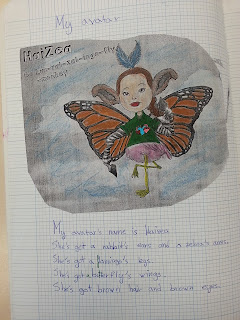 My avatar
HaiZea
My avatar's name is Haizea
She's got a rabbit's ears and a zebra's arms.
She's got a flamingo's legs.
She's got a butterfly's wings.
She's got brown hair and brown eyes.